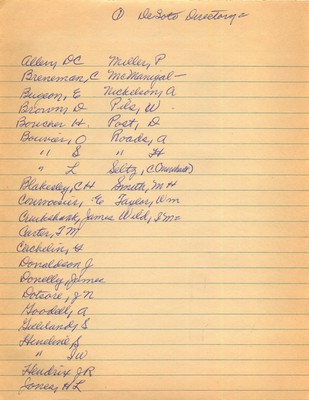 ① DeSoto Directory
Allen, DC Miller, P
Breneman, C McManigal —
Bugeon, E Nickelson, A
Brown, D Pils, W.
Boucher H. Post, D
Bouvier, O Roads, A
" S " H
" L Seltz, C
Blakesley, CH Smith, M H
Cournoeuir, E Taylor, Wm
Cruikshank, James Wild, J
Carter, T M
Cachelin, G
Donaldson J
Donelly, James
Dotzore, J N
Goodell, A
Gilliland, S
Hendrie, S
" J W
Hendrix J R
Jones, H L